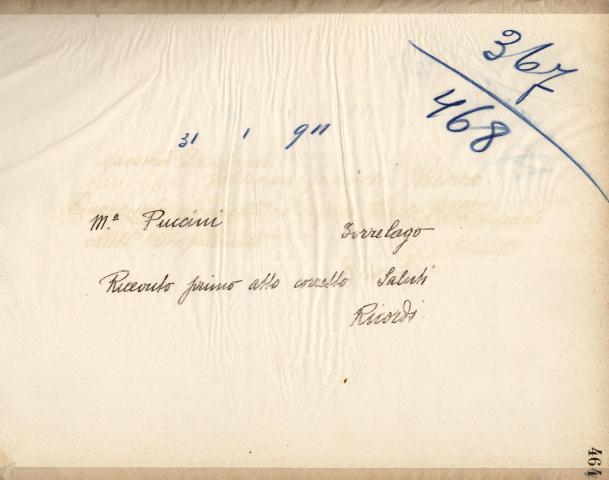 367
468
31 1 911
M.º Puccini Torrelago
Ricevuto primo atto corretto Saluti
Ricordi
464